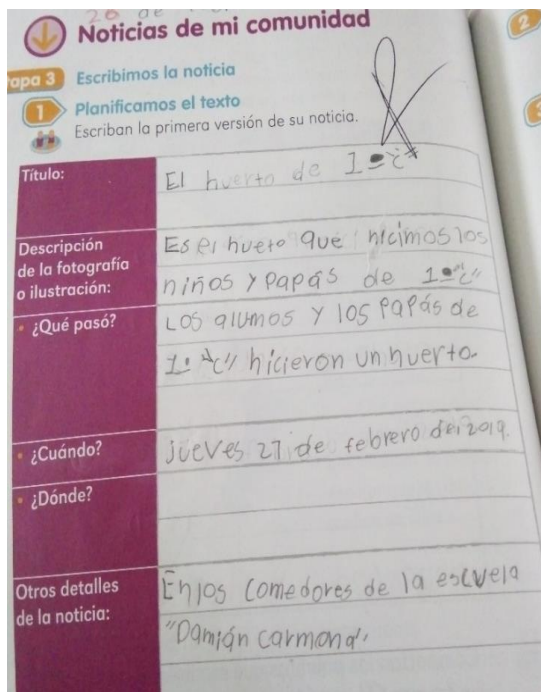 20 de
Noticias de mi comunidad
2
apa 3 Escribimos la noticia
1 Planificamos el texto
Escriban la primera versión de su noticia.
Título:
El huerto de 1º "c"
Descripción
de la fotografía
o ilustración:
Es el hueto que hicimos los
niños y papás de 1º "c"
• ¿Qué pasó?
Los alumos y los papás de
1º "c" hicieron un huerto.
• ¿Cuándo?
jueves 27 de febrero del 2019.
• ¿Dónde?
Otros detalles
de la noticia:
En los comedores de la escuela
"Damián carmona"